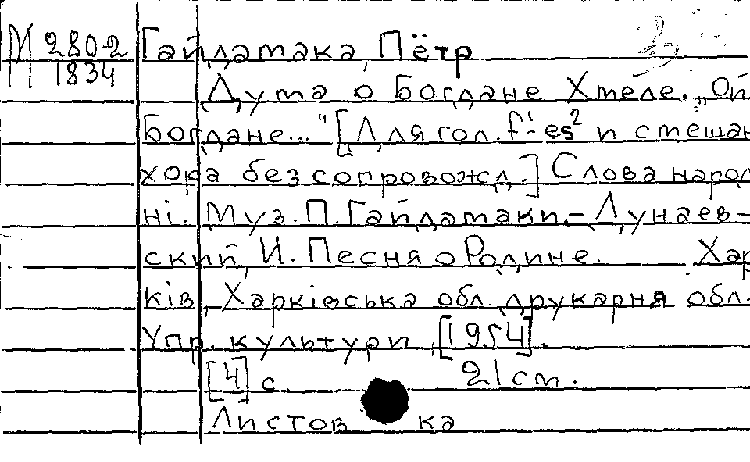 М 2802 Гайдамака, Пётр
1834
Дума о Богдане Хмеле. „Ой
Богдане..." [Для гол. f¹-es² и смешан
хора без сопровожд.] Слова народ
ні. Муз. П. Гайдамаки.– Дунаев-
ский, И. Песня о Родине. Хар
ків, Харківська обл. друкарня обл.
Упр. культури, [1954].
[4] с. 21 см.
Листовка